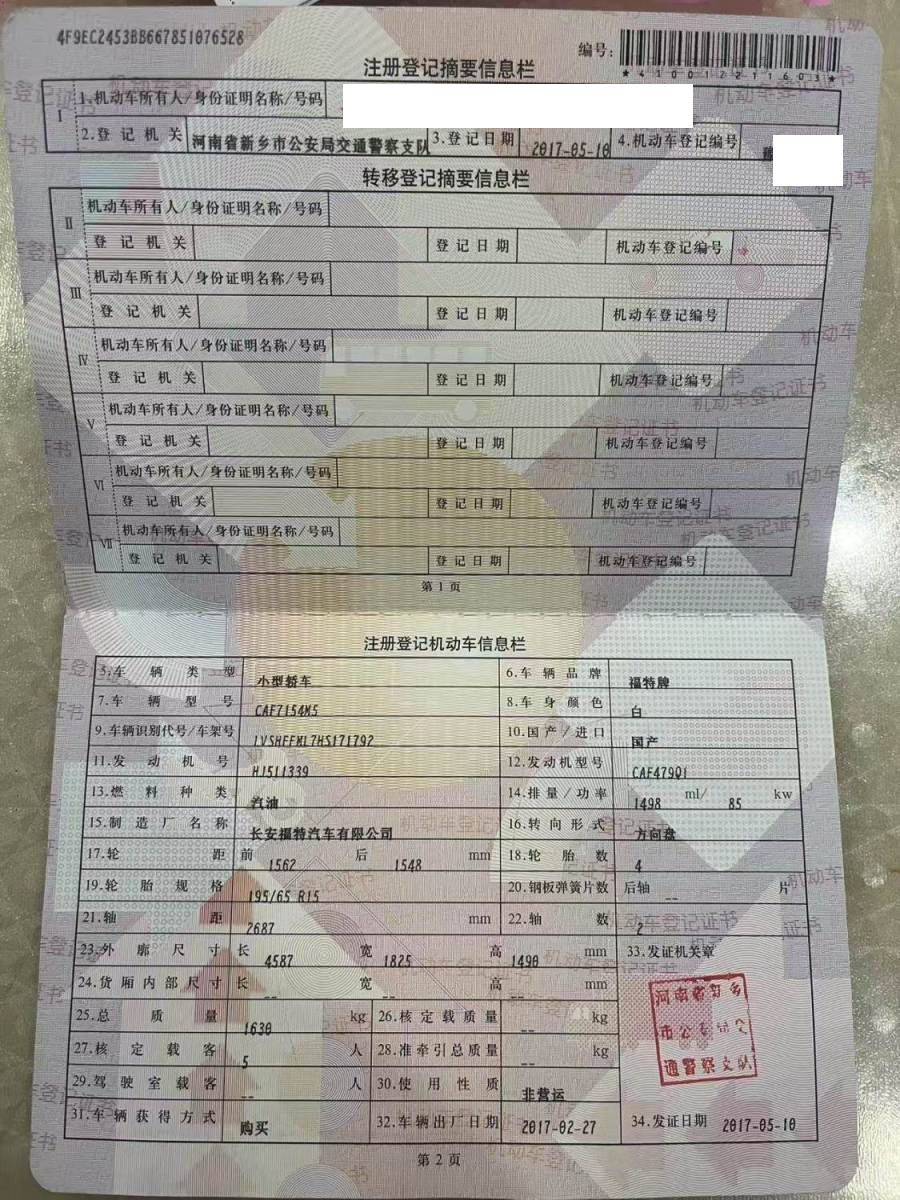 4F9EC2453BB667851076528
编号:
*410012211603*
注册登记摘要信息栏
I 1.机动车所有人/身份证明名称/号码
2.登记机关 河南省新乡市公安局交通警察支队 3.登记日期 2017-05-10 4.机动车登记编号
转移登记摘要信息栏
II 机动车所有人/身份证明名称/号码
登记机关 登记日期 机动车登记编号
III 机动车所有人/身份证明名称/号码
登记机关 登记日期 机动车登记编号
IV 机动车所有人/身份证明名称/号码
登记机关 登记日期 机动车登记编号
V 机动车所有人/身份证明名称/号码
登记机关 登记日期 机动车登记编号
VI 机动车所有人/身份证明名称/号码
登记机关 登记日期 机动车登记编号
VII 机动车所有人/身份证明名称/号码
登记机关 登记日期 机动车登记编号
第1页
注册登记机动车信息栏
5.车辆类型 小型轿车 6.车辆品牌 福特牌
7.车辆型号 CAF7154M5 8.车身颜色 白
9.车辆识别代号/车架号 LVSHFFML7HS171792 10.国产/进口 国产
11.发动机号 HJ511339 12.发动机型号 CAF479Q1
13.燃料种类 汽油 14.排量/功率 1498 ml/ 85 kw
15.制造厂名称 长安福特汽车有限公司 16.转向形式 方向盘
17.轮距 前 1562 后 1548 mm 18.轮胎数 4
19.轮胎规格 195/65 R15 20.钢板弹簧片数 后轴 -- 片
21.轴距 2687 mm 22.轴数 2
23.外廓尺寸 长 4587 宽 1825 高 1490 mm 33.发证机关章
24.货厢内部尺寸 长 -- 宽 -- 高 -- mm
25.总质量 1630 kg 26.核定载质量 -- kg
27.核定载客 5 人 28.准牵引总质量 -- kg
河南省新乡
市公安局交
通警察支队
29.驾驶室载客 -- 人 30.使用性质 非营运
31.车辆获得方式 购买 32.车辆出厂日期 2017-02-27 34.发证日期 2017-05-10
第2页